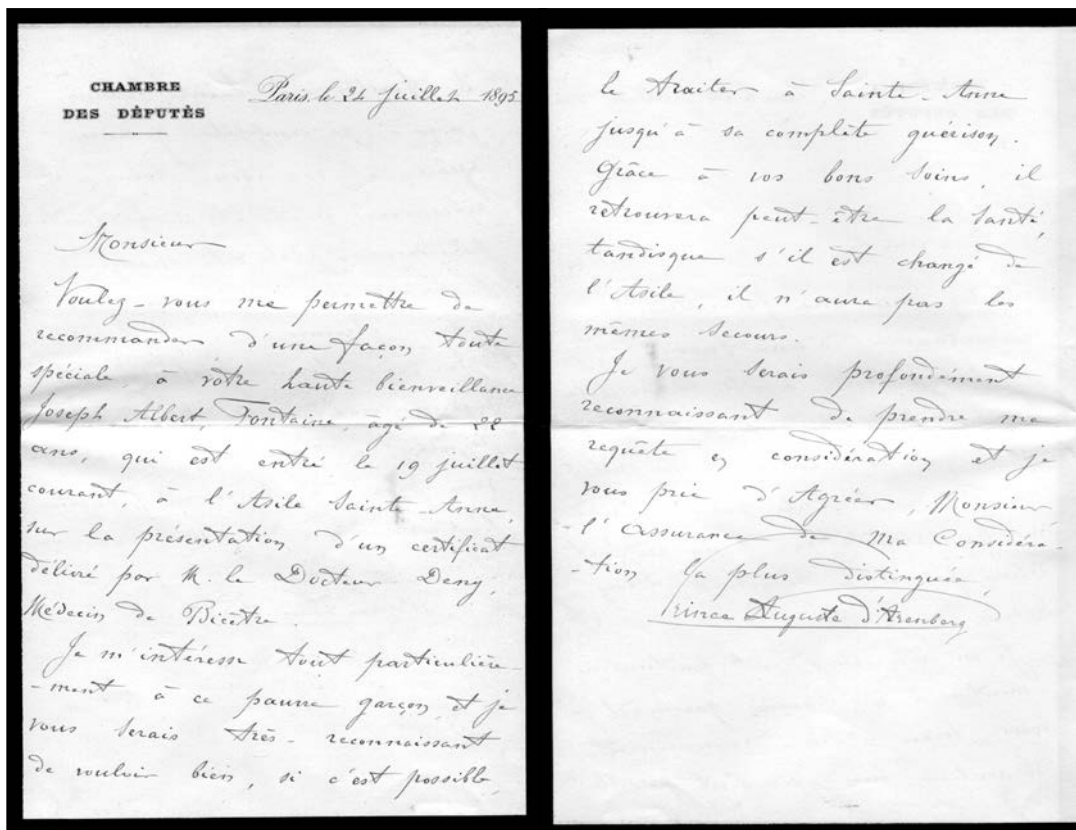 CHAMBRE
DES DÉPUTÉS
Paris, le 24 juillet 1895
Monsieur
Voulez-vous me permettre de
recommander d'une façon toute
spéciale, à votre haute bienveillance
Joseph Albert, Fontaine, âgé de 22
ans, qui est entré le 19 juillet
courant, à l'Asile Sainte-Anne,
sur la présentation d'un certificat
délivré par M. le Docteur Deny,
Médecin de Bicêtre.
Je m'intéresse tout particulière-
-ment à ce pauvre garçon, et je
vous serais très-reconnaissant
de vouloir bien, si c'est possible,
le traiter à Sainte-Anne
jusqu'à sa complète guérison.
Grâce à vos bons soins, il
retrouvera peut-être la santé,
tandisque s'il est changé de
l'Asile, il n'aura pas les
mêmes secours.
Je vous serais profondément
reconnaissant de prendre ma
requête en considération et je
vous prie d'Agréer, Monsieur
l'assurance de ma Considéra-
-tion la plus distinguée,
Prince Auguste d'Arenberg